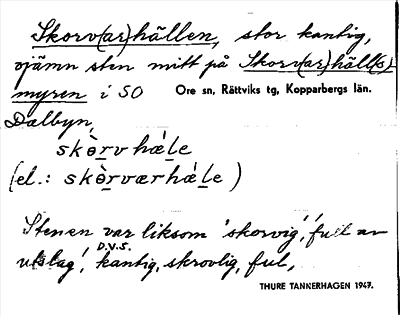 Skorv(ar)hällen, stor kantig,
ojämn sten mitt på Skorv(ar)häll(s)
myren i SO Ore sn, Rättviks tg, Kopparbergs län.
Dalbyn,
skɵ̀rv hæ̀le
(el.: skɵ̀rværhæ̀le)
Stenen var liksom 'skorvig', 'full av
utslag', D.V.S. kantig, skrovlig, ful,
THURE TANNERHAGEN 1947.